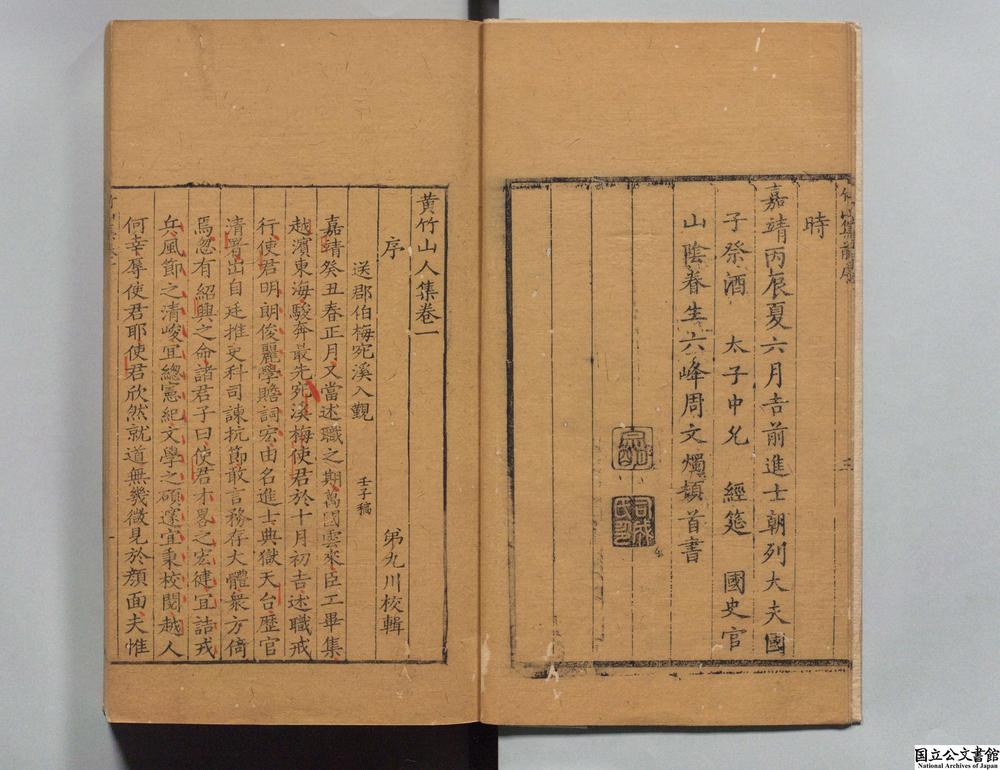 時
嘉靖丙辰夏六月吉前進士朝列大夫國
子祭酒 太子中允 經筵 國史官
山陰眷生六峰周文燭頓首書
三
黃竹山人集卷一
弟九川校輯
序
送郡伯梅宛溪入覲 壬子稿
嘉靖癸丑春正月又當述職之期萬國雲來臣工畢集
越濱東海駿奔最先宛溪梅使君於十月初吉述職戒
行使君明朗俊麗學贍詞宏由名進士典獄天台歷官
清署出自廷推吏科司諫抗節敢言務存大體衆方倚
焉忽有紹興之命諸君子曰使君才畧之宏健宜詰戎
兵風節之清峻宜總憲紀文學之碩邃宜秉校閱越人
何幸辱使君耶使君欣然就道無幾微見於顏面夫惟
国立公文書館
National Archives of Japan